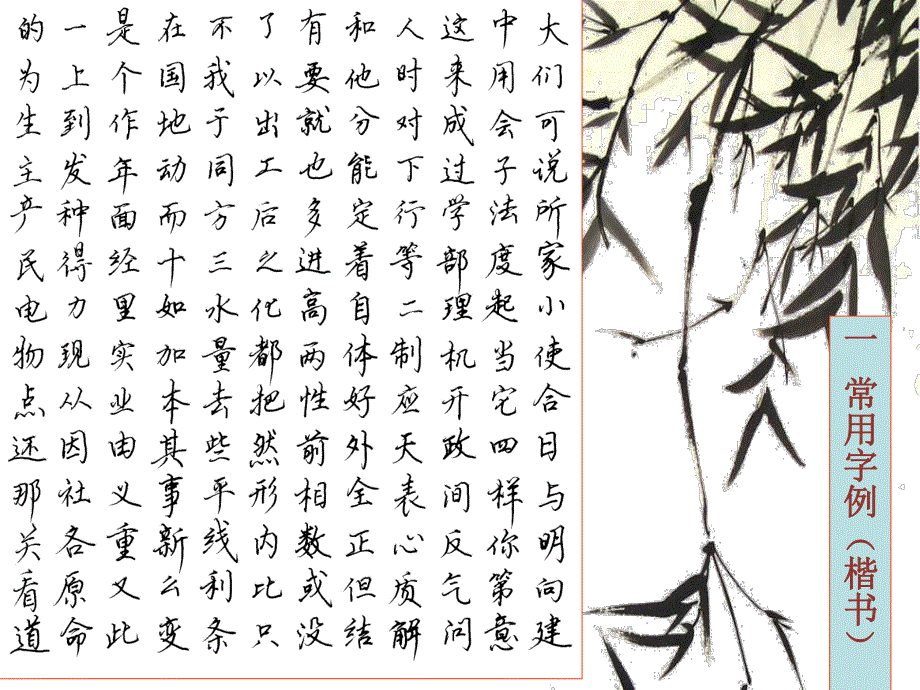 的一是在不了有和人这中大
为上个国我以要他时来用们
生到作地于出就分对成会可
主发年动同工也能下过子说
产种面而方后多定行学法所
民得经十三之进着等部度家
电力里如水化高自二理起小
物现实加量都两体制机当使
点从业本去把性好应开它合
还因由其些然前外天政四日
那社义事平形相全表间样与
关各重新线内数正心反你明
看原又么利比或但质气第向
道命此变条只没结解问意建
一 常用字例（楷书）